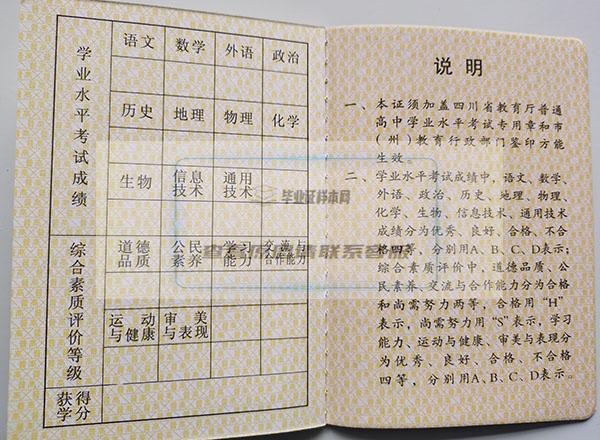 学业水平考试成绩
语文 数学 外语 政治
历史 地理 物理 化学
生物 信息技术 通用技术
综合素质评价等级
道德品质 公民素养 学习能力 交流与合作能力
运动与健康 审美与表现
获得学分
说明
一、本证须加盖四川省教育厅普通
高中学业水平考试专用章和市
(州)教育行政部门签印方能
生效。
二、学业水平考试成绩中,语文、数学、
外语、政治、历史、地理、物理、
化学、生物、信息技术、通用技术
成绩分为优秀、良好、合格、不合
格四等,分别用A、B、C、D表示;
综合素质评价中,道德品质、公
民素养、交流与合作能力分为合格
和尚需努力两等,合格用“H”
表示,尚需努力用“S”表示,学习
能力、运动与健康、审美与表现分
为优秀、良好、合格、不合格
四等,分别用A、B、C、D表示。
毕业证样本网